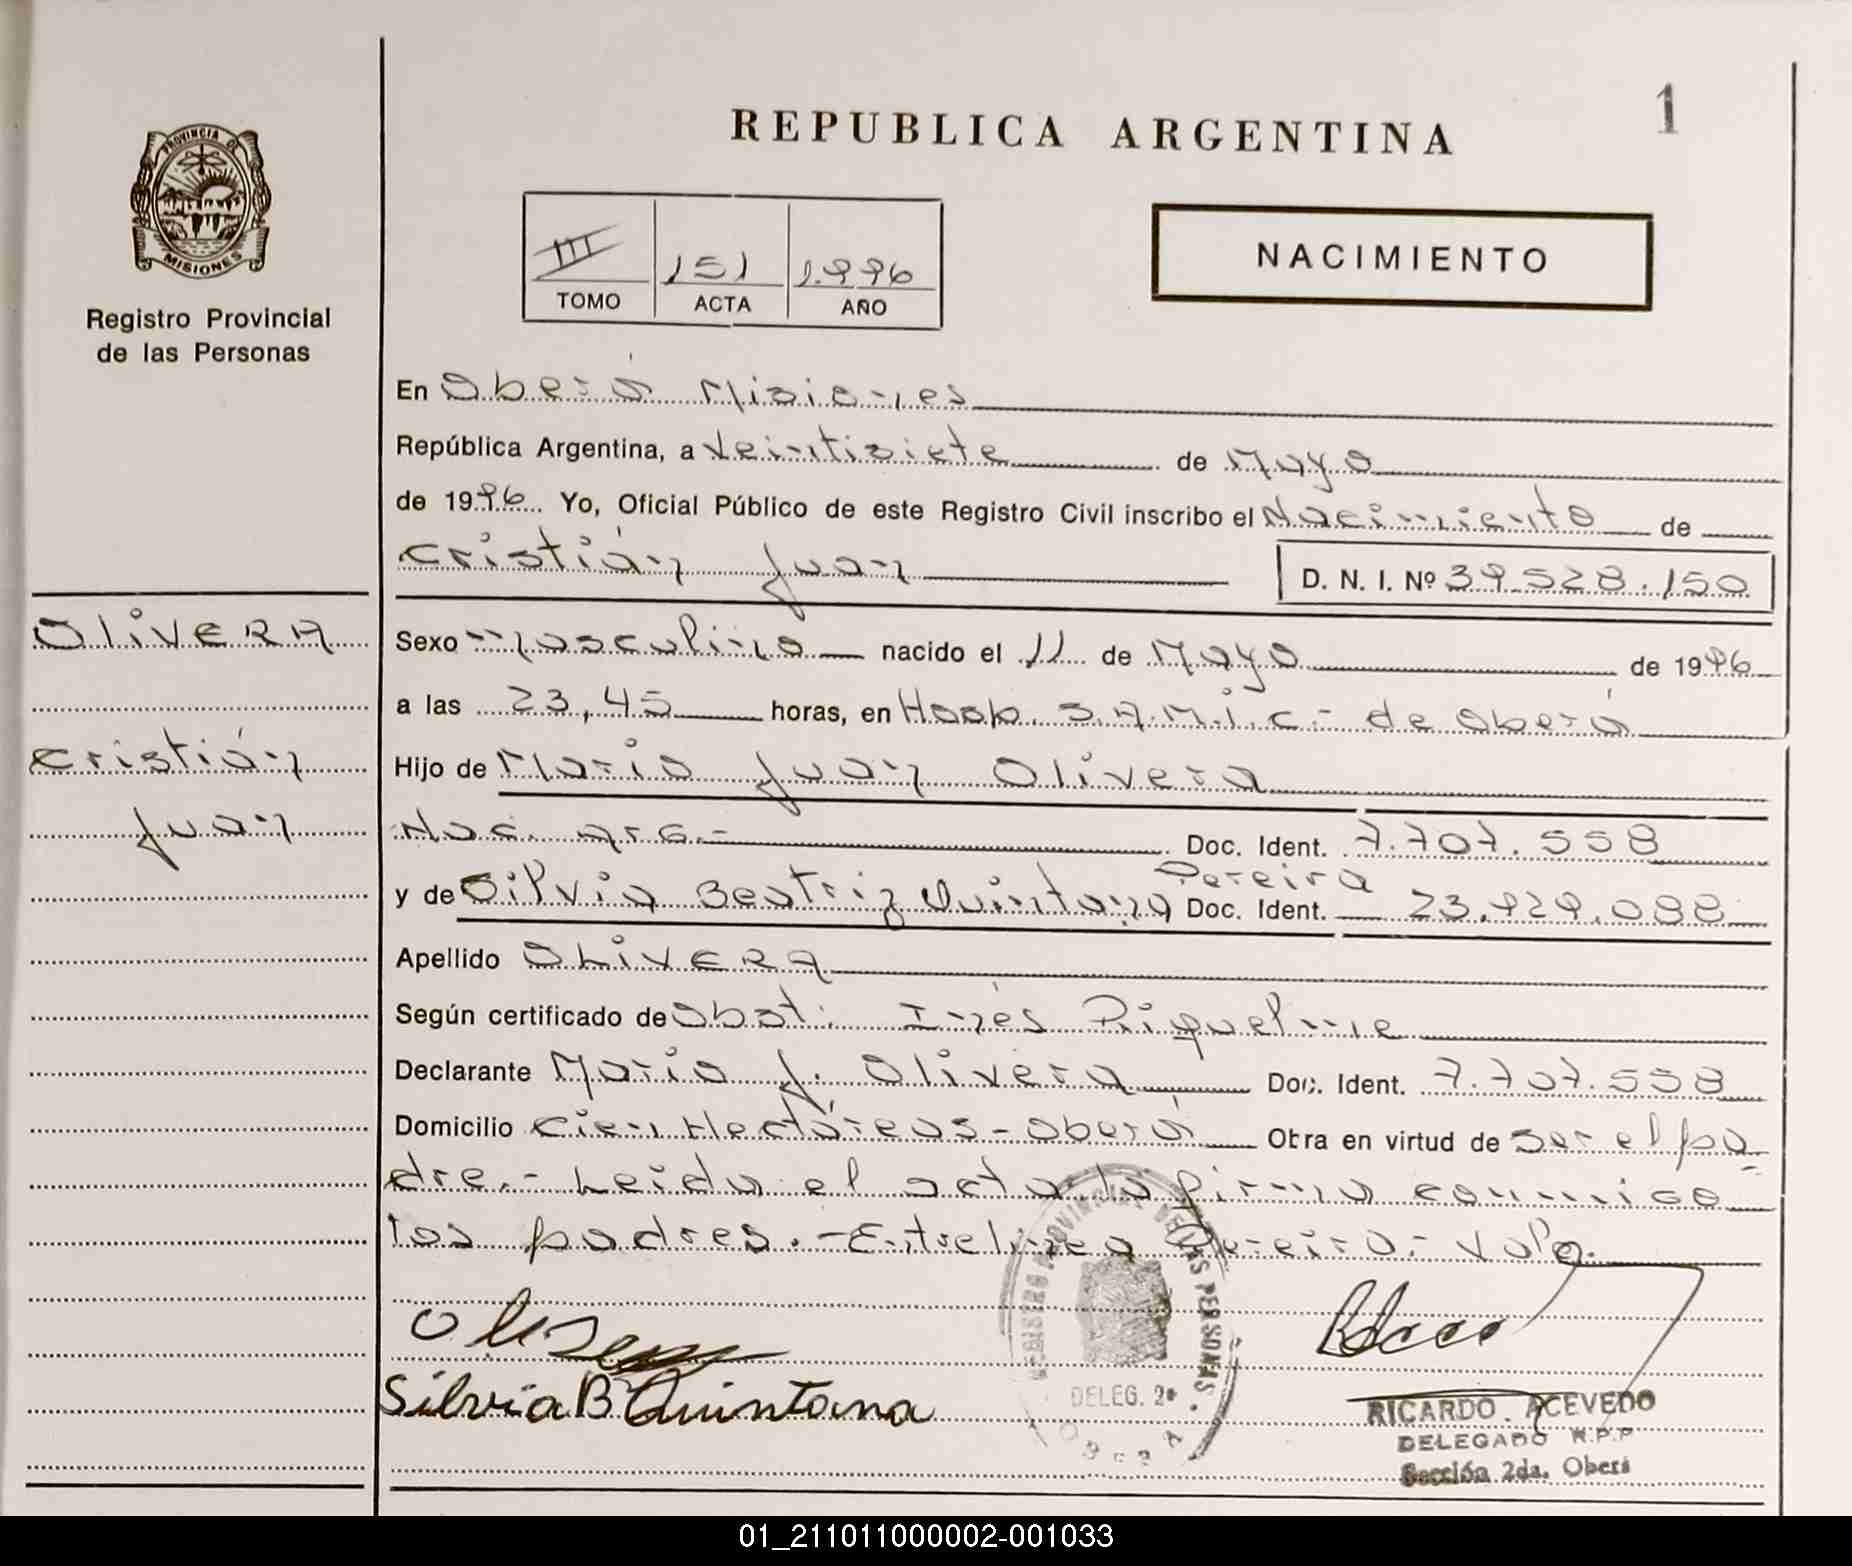 1
REPUBLICA ARGENTINA
PROVINCIA DE
MISIONES
Registro Provincial
de las Personas
III 151 1.996
TOMO ACTA AÑO
NACIMIENTO
En Oberá Misiones
República Argentina, a Veintisiete de Mayo
de 1996 Yo, Oficial Público de este Registro Civil inscribo el Nacimiento de
Cristián Juan
D. N. I. Nº 39.528.150
OLIVERA
Cristián
Juan
Sexo masculino nacido el 11 de Mayo de 1996
a las 23,45 horas, en Hosp. S.A.M.i.c.- de Oberá
Hijo de Mario Juan Olivera
Nac. arg.- Doc. Ident. 7.707.558
y de Silvia Beatriz Quintana Pereira Doc. Ident. 23.929.088
Apellido OLIVERA
Según certificado de Obst. Inés Riquelme
Declarante Mario J. Olivera Doc. Ident. 7.707.558
Domicilio Cien Hectáreas - Oberá Obra en virtud de ser el pa-
dre.- Leída el acta la firman conmigo
los padres.- Entrelínea Pereira.- Vale.
Silvia B Quintana
REGISTRO PROVINCIAL DE LAS PERSONAS
DELEG. 2ª
OBERA
RICARDO ACEVEDO
DELEGADO R.P.P
Sección 2da. Oberá
01_211011000002-001033